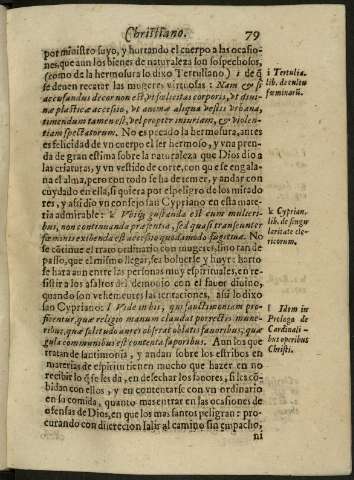 Christiano. 79
por ministro suyo, y hurtando el cuerpo a las ocasio-
nes, que aun los bienes de naturaleza son sospechosos,
(como de la hermosura lo dixo Tertuliano) i de q̃
se deuen recatar las mugeres virtuosas : Nam & si
accusandus decor non est, vt fœlicitas corporis, vt diui-
næ plasticæ accessio, vt animæ aliqua vestis vrbana,
timendum tamen est, vel propter iniuriam, & violen-
tiam spectatorum. No es pecado la hermosura, antes
es felicidad de vn cuerpo el ser hermoso, y vna pren-
da de gran estima sobre la naturaleza que Dios dio a
las criaturas, y vn vestido de corte, con que se engala-
na el alma, pero con todo se ha de temer, y andar con
cuydado en ella, si quiera por el peligro de los mirado
res, y assi dio vn consejo san Cypriano en esta mate-
ria admirable: k Vobis gustanda est cum mulieri-
bus, non continuanda præsentia, sed quasi transeunter
fœminis exibenda est accessio quodammodo fugitiua. No
se cõtinue el trato ordinario con mugeres, sino tan de
passo, que el mismo llegar, sea boluerse y huyr: harto
se hara aun entre las personas muy espirituales, en re-
sistir a los assaltos del demonio con el fauor diuino,
quando son vehementes las tentaciones, assi lo dixo
san Cypriano: l Vnde in his, qui sanctimoniam pro-
fitentur, quæ religio manum claudat porrectis mune-
ribus, quæ solitudo aures obserat oblatis fauoribus, quæ
gula communibus est contenta saporibus. Aun los que
tratan de santimonia, y andan sobre los estribos en
materias de espiritu tienen mucho que hazer en no
recibir lo q̃ se les da, en desechar los fauores, si les cõ-
bidan con ellos, y en contentarse con vn ordinario
en su comida, quanto mas entrar en las ocasiones de
ofensas de Dios, en que los mas santos peligran: pro-
curando con discrecion salir al camino sin empacho,
ni
i Tertulia.
lib. de cultu
fœminarũ.
k Cyprian.
lib. de singu
laritate cle-
ricorum.
l Idem in
Prologo de
Cardinali-
bus operibus
Christi.